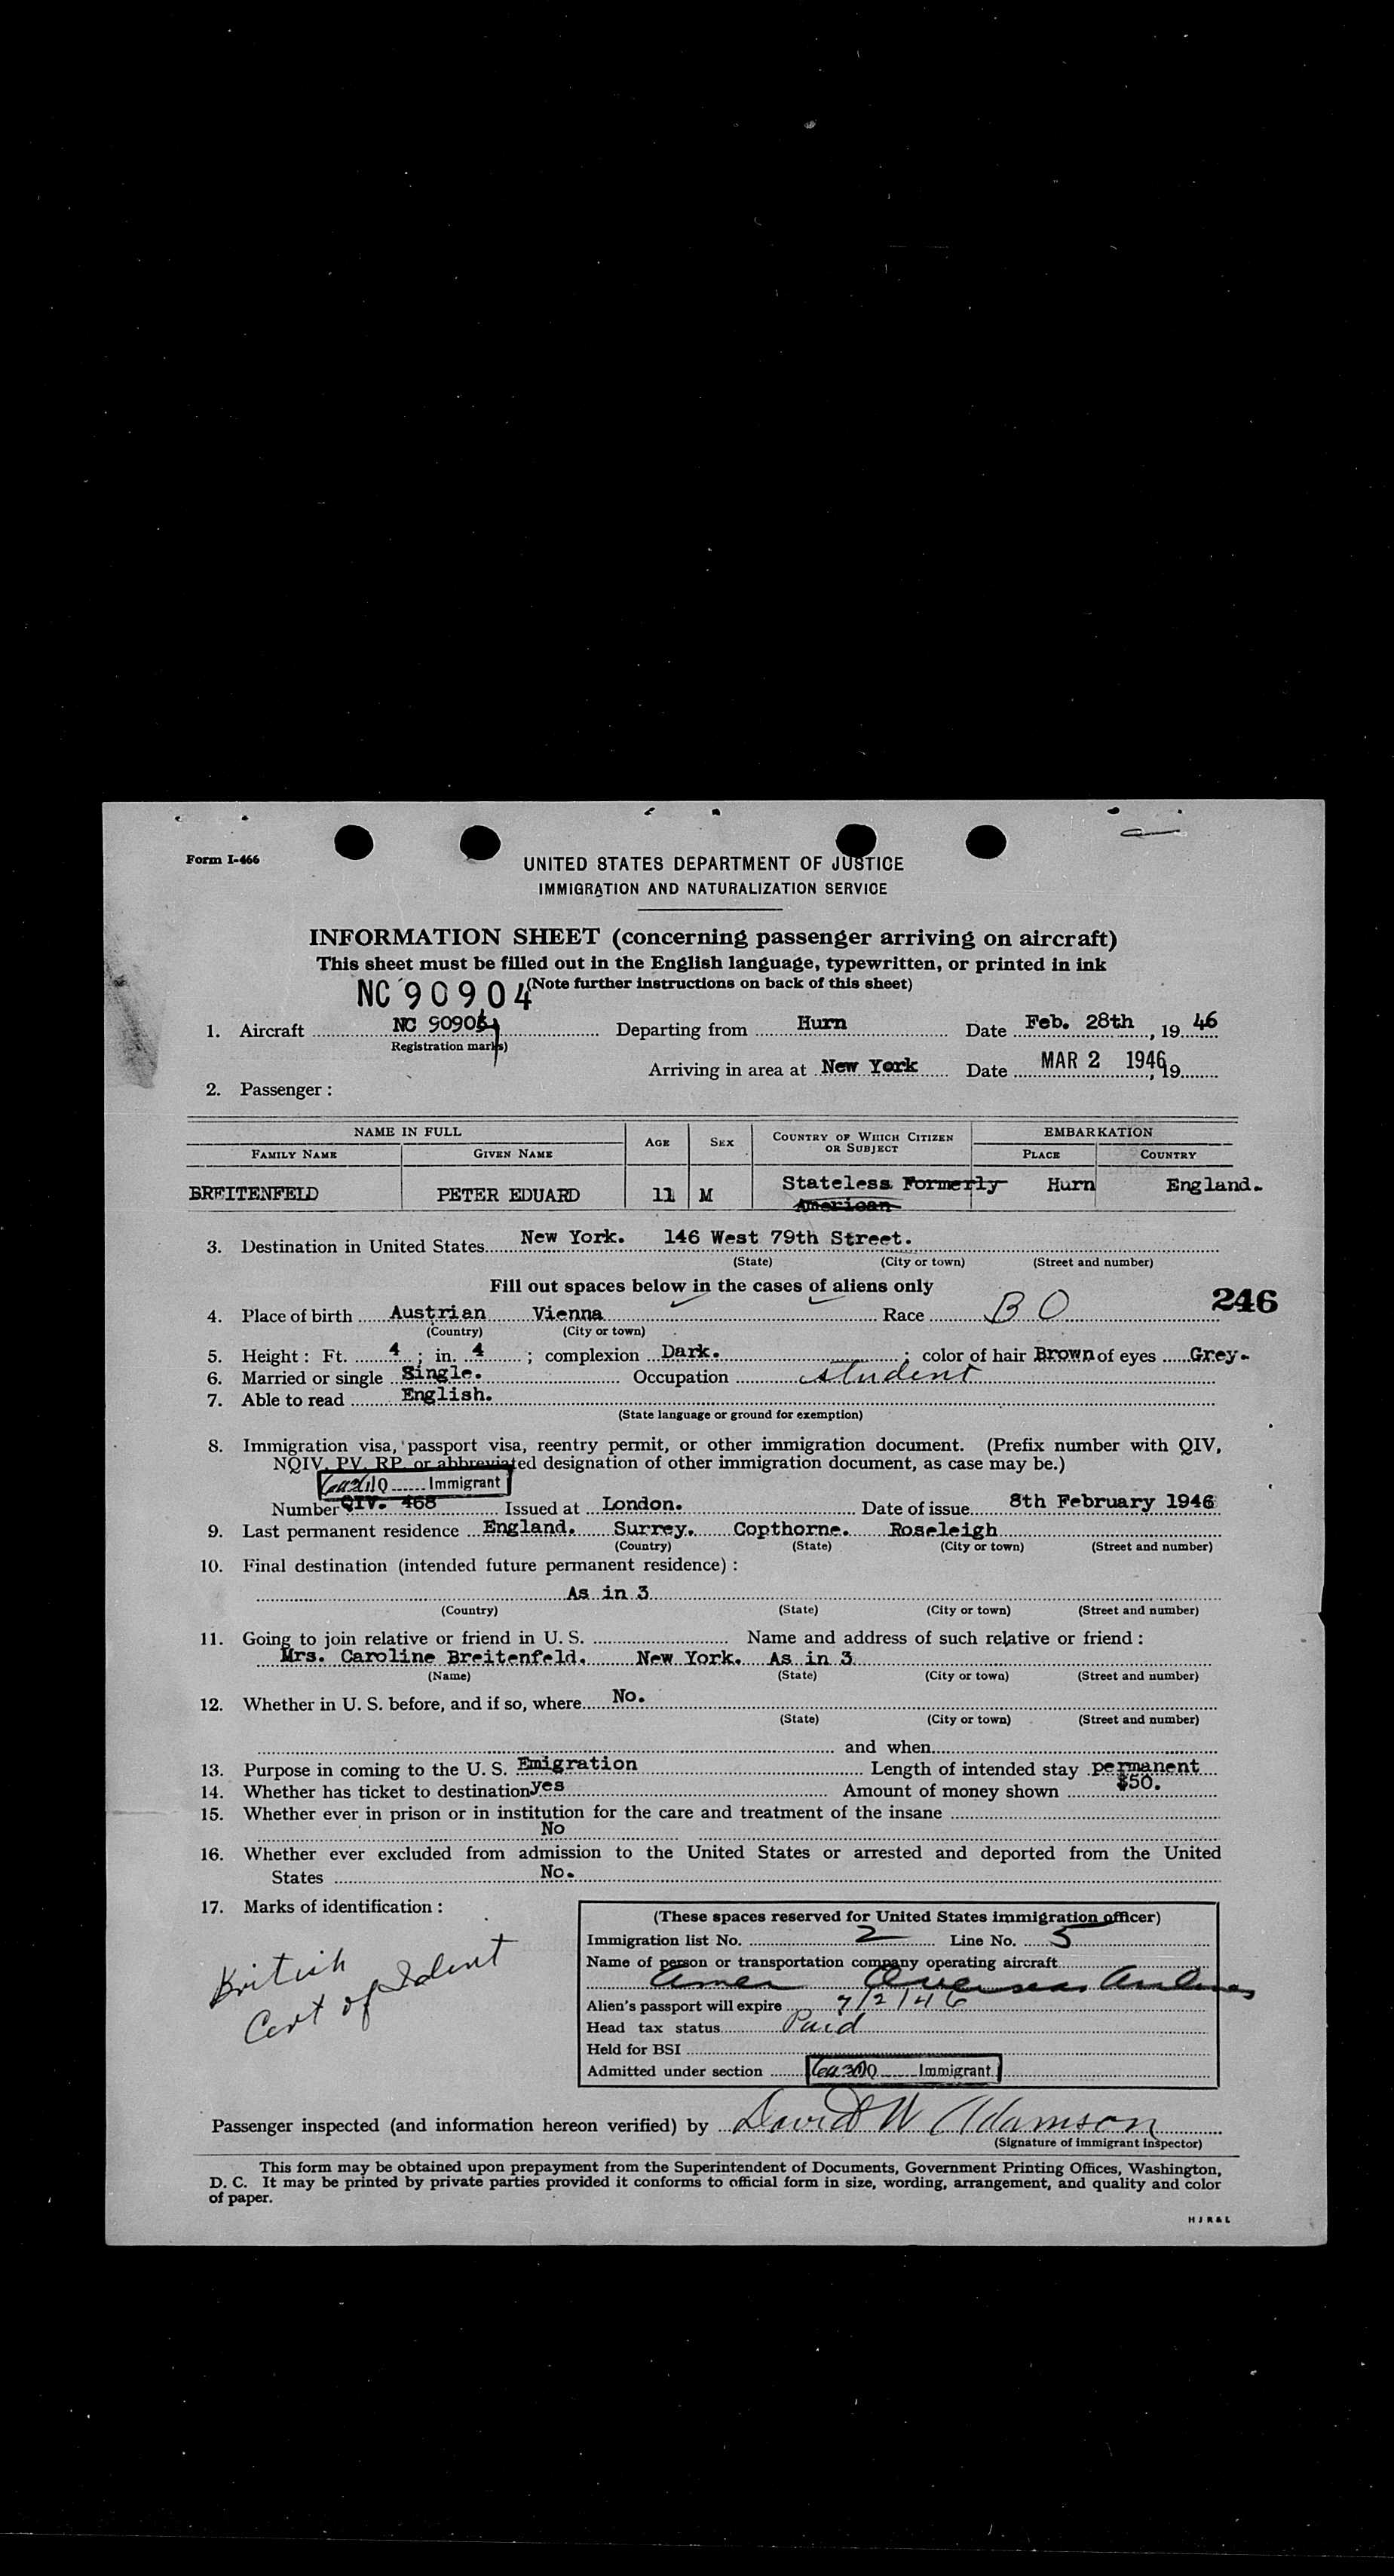 Form I-466
UNITED STATES DEPARTMENT OF JUSTICE
IMMIGRATION AND NATURALIZATION SERVICE
INFORMATION SHEET (concerning passenger arriving on aircraft)
This sheet must be filled out in the English language, typewritten, or printed in ink
NC 90904 (Note further instructions on back of this sheet)
1. Aircraft NC 9090 Departing from Hurn Date Feb. 28th, 19 46
(Registration marks)
Arriving in area at New York Date MAR 2 1946, 19
2. Passenger :
NAME IN FULL AGE SEX COUNTRY OF WHICH CITIZEN OR SUBJECT EMBARKATION
FAMILY NAME GIVEN NAME PLACE COUNTRY
BREITENFELD PETER EDUARD 11 M Stateless Formerly Hurn England.
American
3. Destination in United States New York. 146 West 79th Street.
(State) (City or town) (Street and number)
Fill out spaces below in the cases of aliens only
246
4. Place of birth Austrian Vienna Race B O
(Country) (City or town)
5. Height : Ft. 4 ; in. 4 ; complexion Dark. ; color of hair Brown of eyes Grey-
6. Married or single Single. Occupation student
7. Able to read English.
(State language or ground for exemption)
8. Immigration visa, passport visa, reentry permit, or other immigration document. (Prefix number with QIV,
NQIV, PV, RP, or abbreviated designation of other immigration document, as case may be.)
Immigrant
Number QIV. 468 Issued at London. Date of issue 8th February 1946
9. Last permanent residence England. Surrey. Copthorne. Roseleigh
(Country) (State) (City or town) (Street and number)
10. Final destination (intended future permanent residence) :
As in 3
(Country) (State) (City or town) (Street and number)
11. Going to join relative or friend in U. S. Name and address of such relative or friend :
Mrs. Caroline Breitenfeld. New York. As in 3
(Name) (State) (City or town) (Street and number)
12. Whether in U. S. before, and if so, where No.
(State) (City or town) (Street and number)
and when
13. Purpose in coming to the U. S. Emigration Length of intended stay permanent
14. Whether has ticket to destination yes Amount of money shown $50.
15. Whether ever in prison or in institution for the care and treatment of the insane
No
16. Whether ever excluded from admission to the United States or arrested and deported from the United
States No.
17. Marks of identification :
British
Cert of Ident
(These spaces reserved for United States immigration officer)
Immigration list No. 2 Line No. 5
Name of person or transportation company operating aircraft
Amer Overseas Airlines
Alien's passport will expire 7/2/46
Head tax status Paid
Held for BSI
Admitted under section Immigrant
Passenger inspected (and information hereon verified) by David W Adamson
(Signature of immigrant inspector)
This form may be obtained upon prepayment from the Superintendent of Documents, Government Printing Offices, Washington,
D. C. It may be printed by private parties provided it conforms to official form in size, wording, arrangement, and quality and color
of paper.
H J R & L